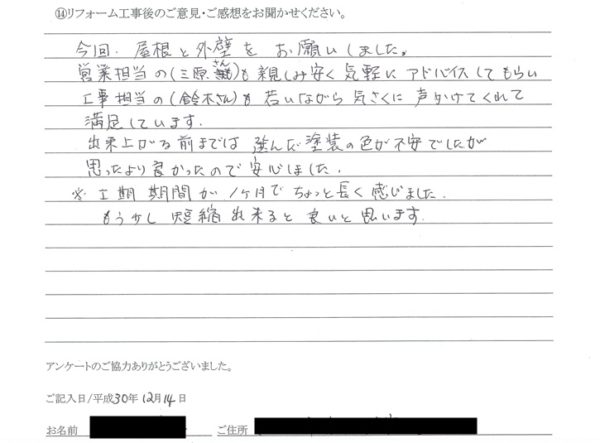 ⑭リフォーム工事後のご意見・ご感想をお聞かせください。
今回、屋根と外壁をお願いしました。
営業担当の(三原さん)も親しみ安く気軽にアドバイスしてもらい
工事担当の(鈴木さん)も若いながら気さくに声かけてくれて
満足しています。
出来上がる前までは選んだ塗装の色が不安でしたが
思ったより良かったので安心しました。
※工期期間が1ヶ月でちょっと長く感じました。
もう少し短縮出来ると良いと思います。
アンケートのご協力ありがとうございました。
ご記入日/平成30年12月14日
お名前 ご住所